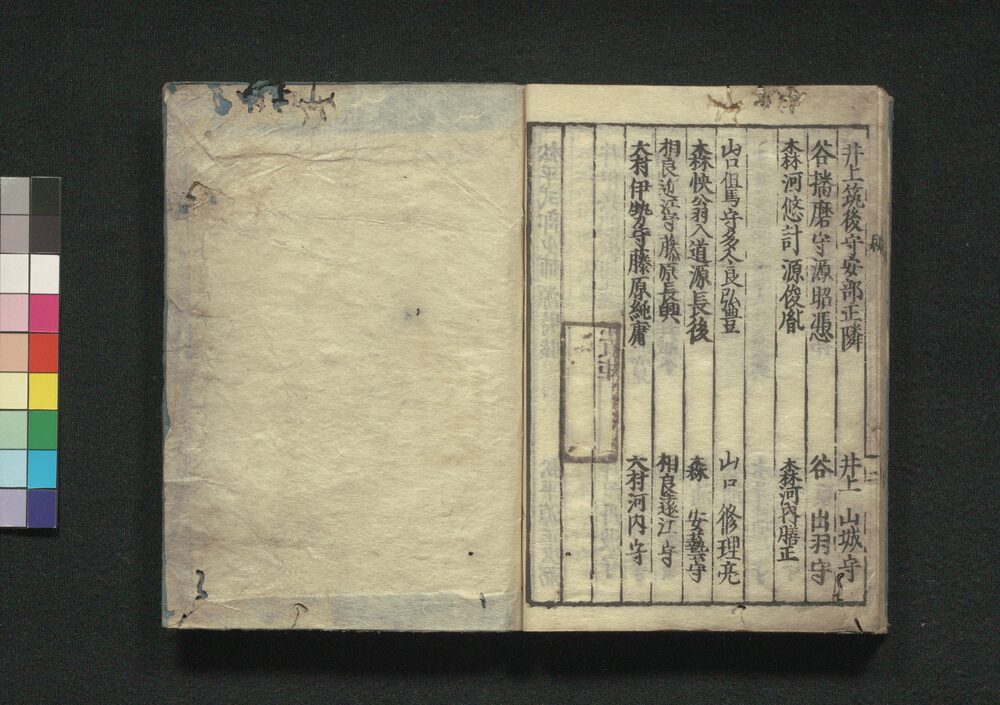 井上筑後守安部正隣
井上 山城守
谷播磨守源昭憑
谷 出羽守
森河悠計源俊胤
森河内膳正
山口但馬守多々良弘豊
山口 修理亮
森怏翁入道源長後
森 安藝守
相良近江守藤原長興
相良遠江守
大村伊勢守藤原純庸
大村河内守